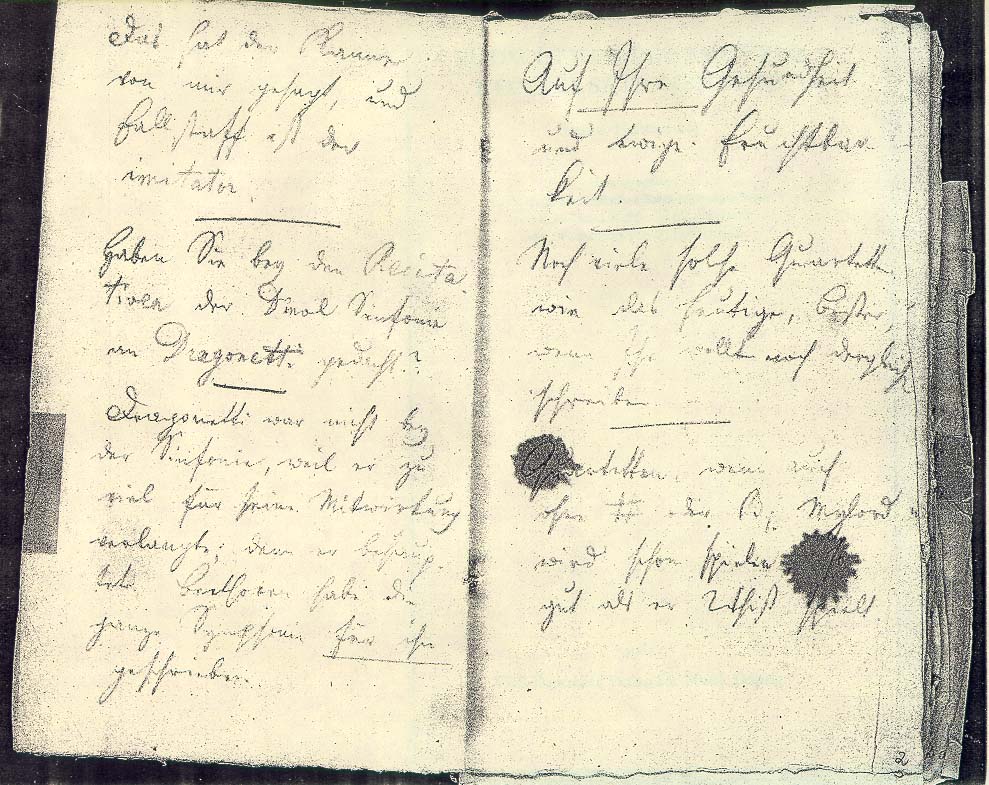 Das hat der Kanne
von mir gesagt, und
Fallstaff ist der
imitator
Haben Sie bey den Recita
tiven der Dmol Sinfonie
an Dragonetti gedacht?
Dragonetti war nicht bey
der Sinfonie, weil er zu
viel für seine Mitwirkung
verlangte; denn er behaup
tete Beethoven habe die
ganze Symphonie für ihn
geschrieben.
Auf Ihre Gesundheit
und ewige Fruchtbar
keit.
Noch viele solche Quartetten
wie das heutige, Bester,
wenn Ihr wollt noch dergleichen
schreiben
Quartetten, wenn auch
ohne # oder B, Mylord
wird schon spielen
gut als er Whist spielt
2